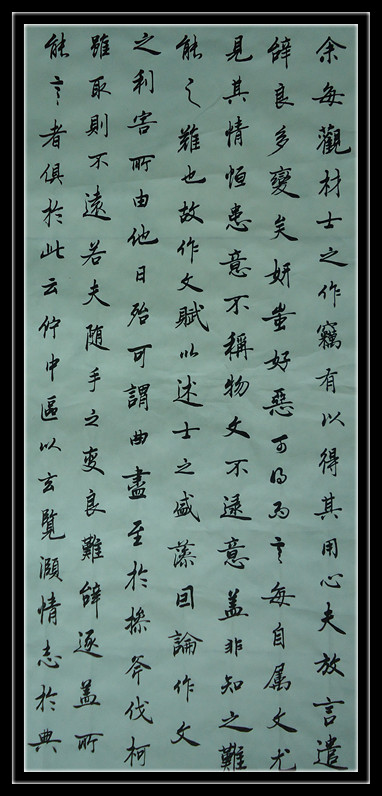 余每觀材士之作竊有以得其用心夫放言遣
辭良多變矣妍蚩好惡可得而言每自属文尤
見其情恒患意不稱物文不逮意蓋非知之難
能之難也故作文賦以述士之盛藻因論作文
之利害所由他日殆可謂曲盡至於操斧伐柯
雖取則不遠若夫随手之變良難辭逐蓋所
能言者俱於此云佇中區以玄覽頤情志於典